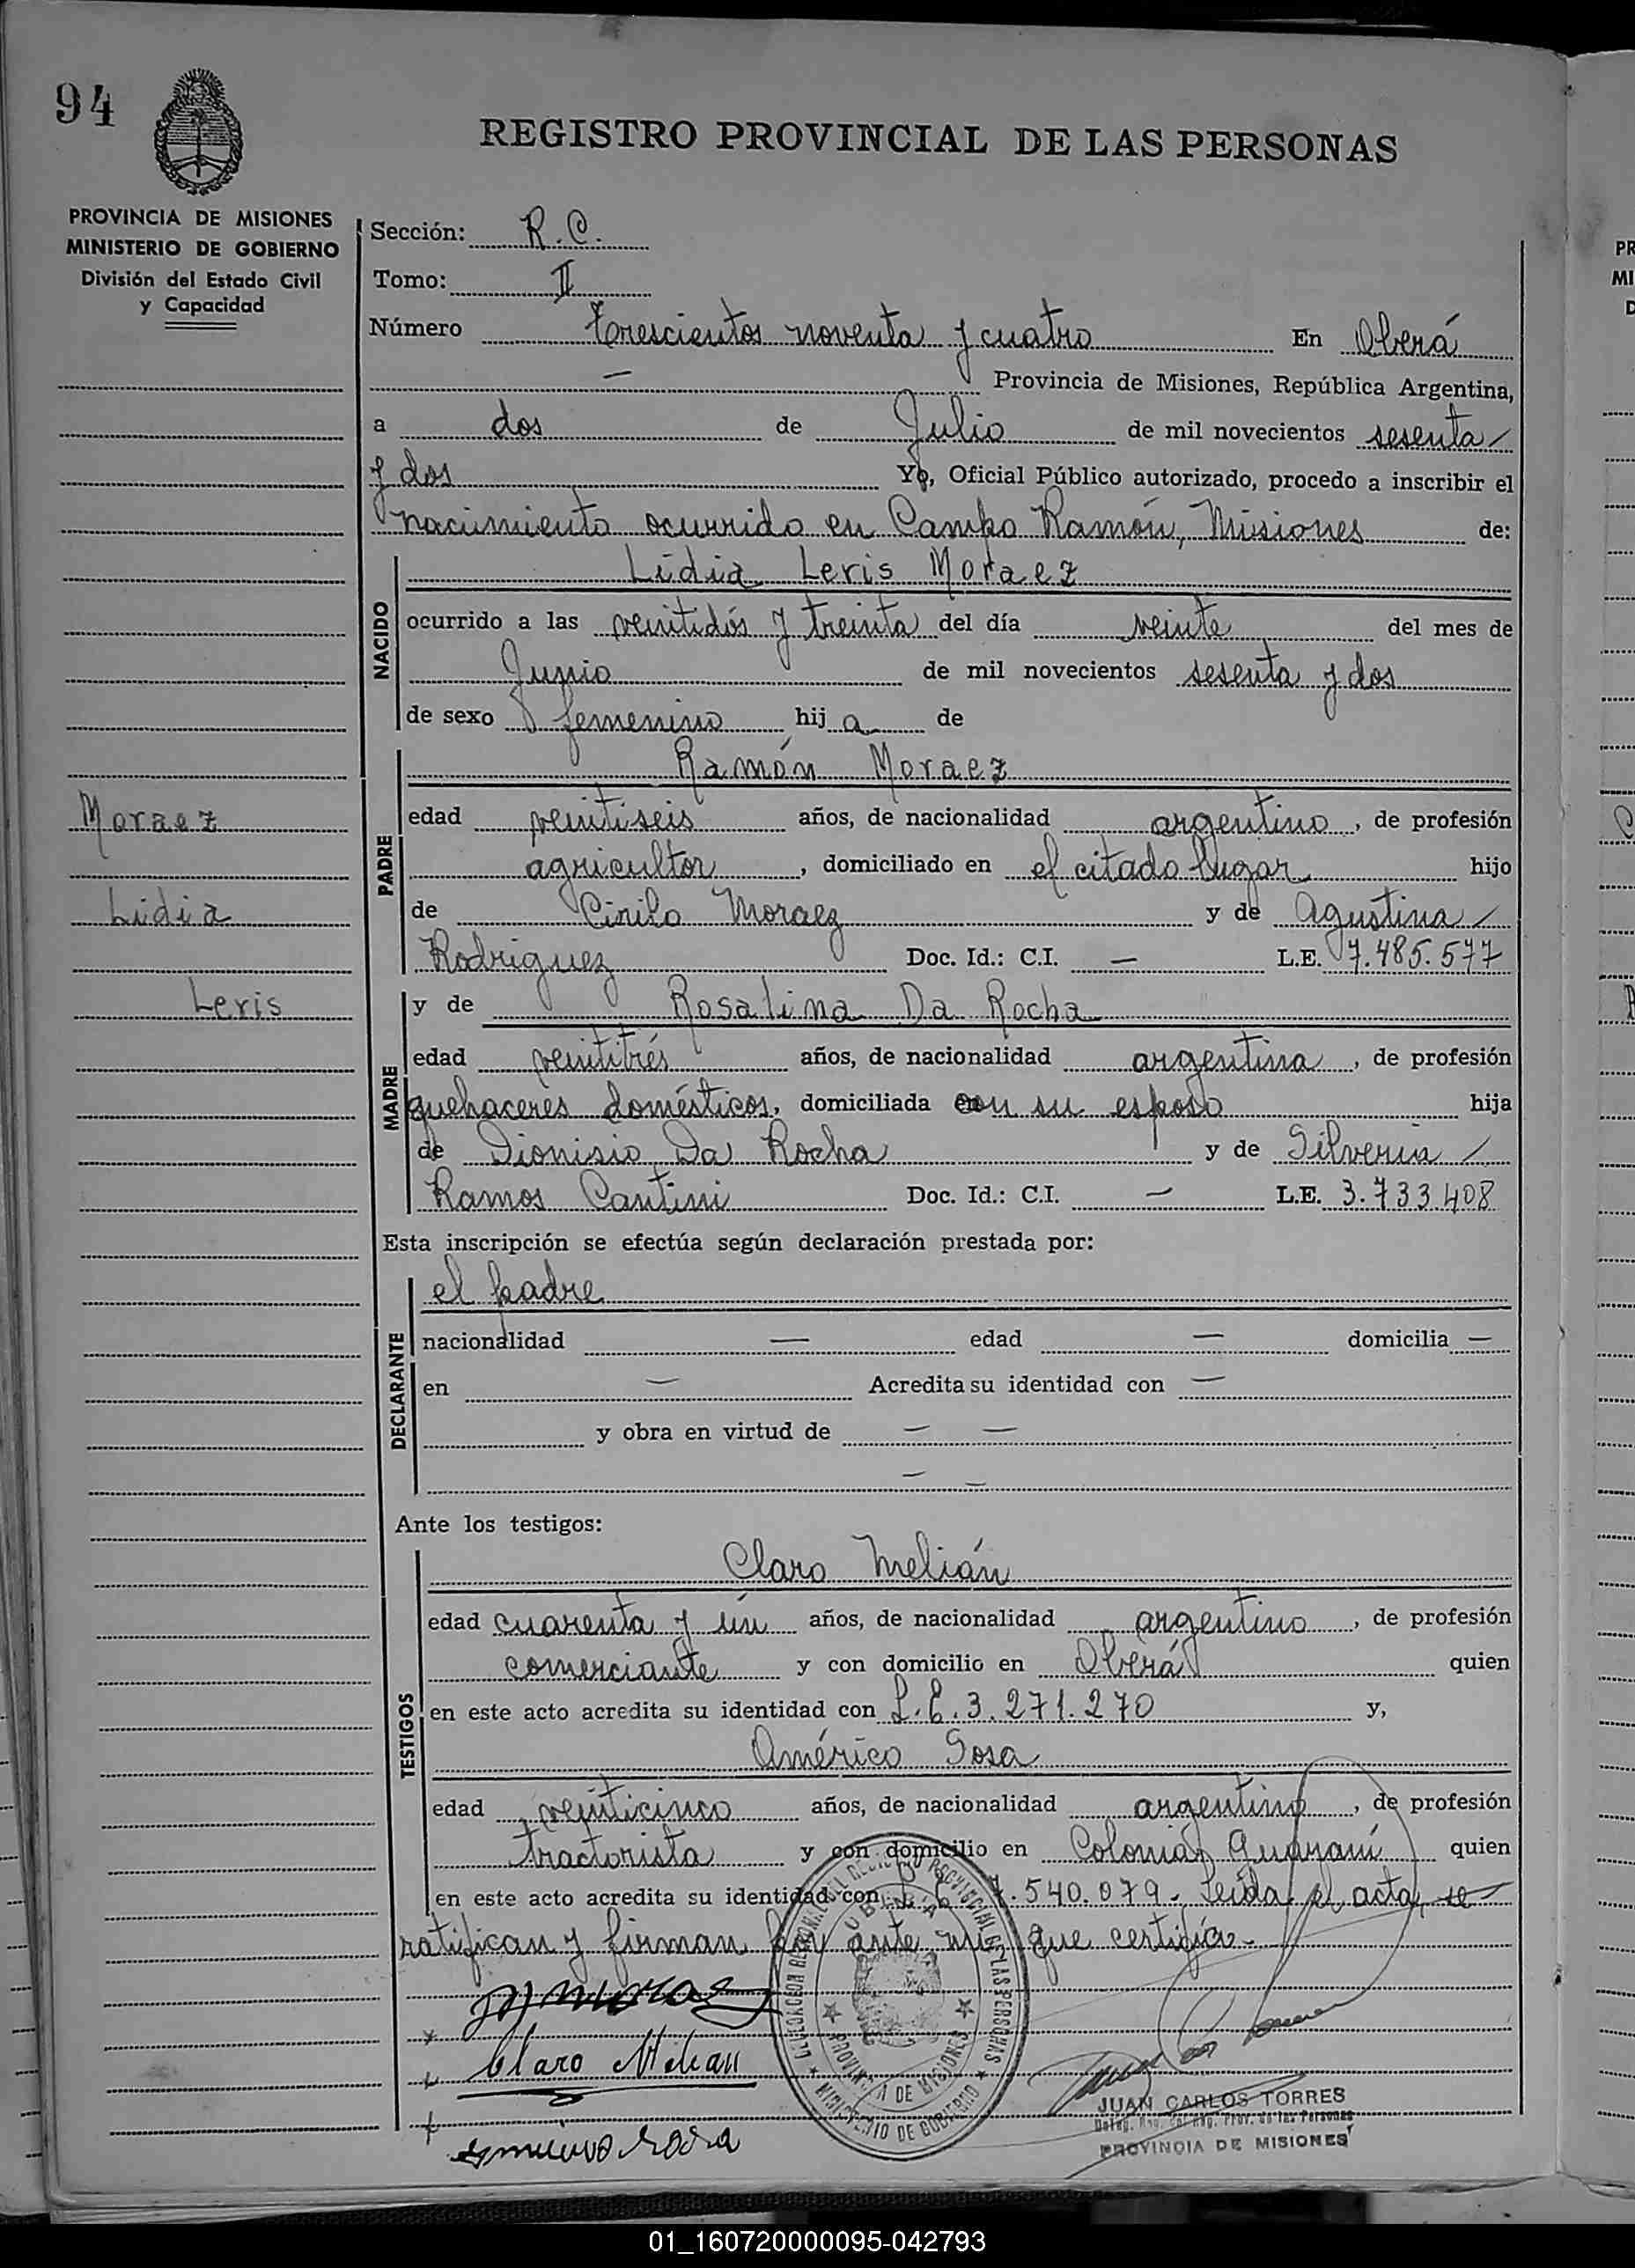 94
REGISTRO PROVINCIAL DE LAS PERSONAS
PROVINCIA DE MISIONES
MINISTERIO DE GOBIERNO
División del Estado Civil
y Capacidad
Sección: R.C.
Tomo: II
Número Trescientos noventa y cuatro En Oberá
— Provincia de Misiones, República Argentina,
a dos de Julio de mil novecientos sesenta
y dos Yo, Oficial Público autorizado, procedo a inscribir el
nacimiento ocurrido en Campo Ramón, Misiones de:
NACIDO
Lidia Leris Moraez
ocurrido a las veintidós y treinta del día veinte del mes de
Junio de mil novecientos sesenta y dos
de sexo femenino hij a de
PADRE
Ramón Moraez
Moraez
edad veintiseis años, de nacionalidad argentino, de profesión
agricultor, domiciliado en el citado lugar hijo
Lidia
de Cirilo Moraez y de Agustina
Rodriguez Doc. Id.: C.I. — L.E. 7.485.577
Leris
MADRE
y de Rosalina Da Rocha
edad veintitrés años, de nacionalidad argentina, de profesión
quehaceres domésticos, domiciliada con su esposo hija
de Dionisio Da Rocha y de Silveria
Ramos Cantini Doc. Id.: C.I. — L.E. 3.733.408
Esta inscripción se efectúa según declaración prestada por:
DECLARANTE
el padre
nacionalidad — edad — domicilia —
en — Acredita su identidad con —
y obra en virtud de — —
— —
Ante los testigos:
TESTIGOS
Claro Melián
edad cuarenta y un años, de nacionalidad argentino, de profesión
comerciante y con domicilio en Oberá quien
en este acto acredita su identidad con L.E. 3.271.270 y,
Américo Sosa
edad veinticinco años, de nacionalidad argentino, de profesión
tractorista y con domicilio en Colonia Guaraní quien
en este acto acredita su identidad con L.E. 7.540.079. Leída el acta, se
ratifican y firman por ante mí que certifico.
Claro Melian
PROVINCIA DE MISIONES
MINISTERIO DE GOBIERNO
JUAN CARLOS TORRES
PROVINCIA DE MISIONES
01_160720000095-042793